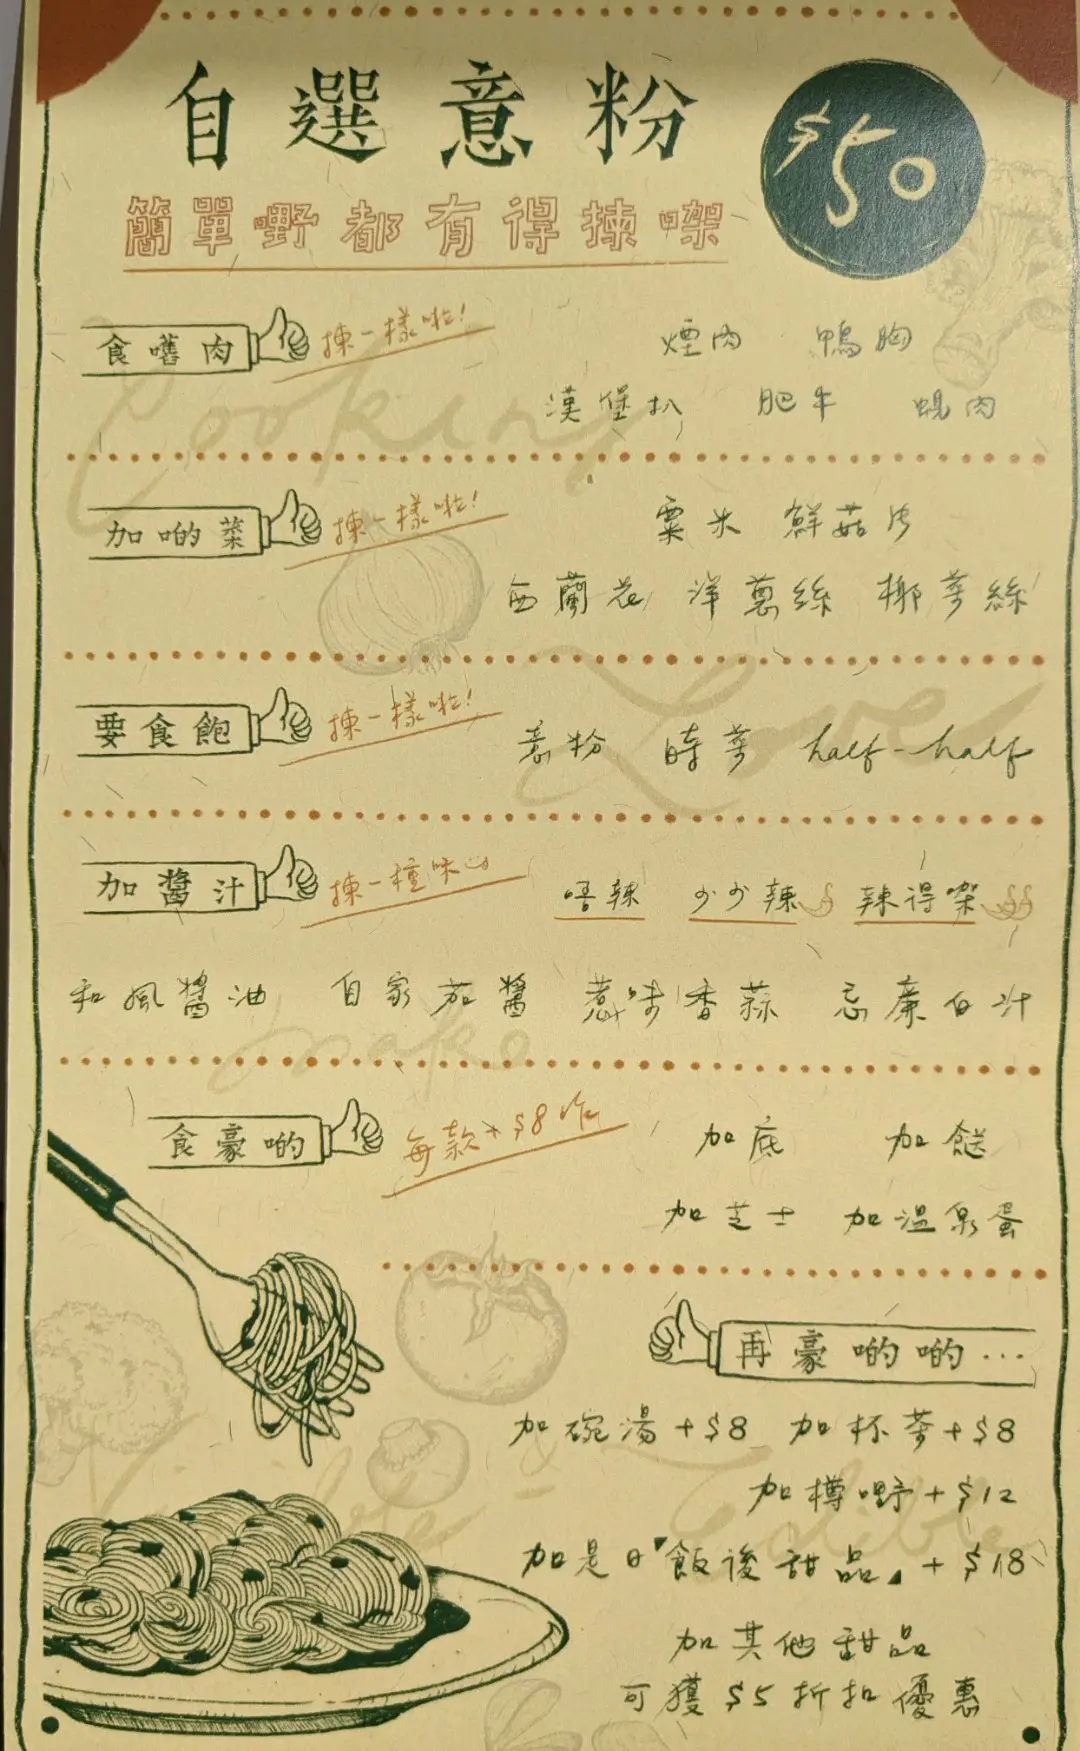 自選意粉
$50
簡單嘢都有得揀㗎
食嚿肉 揀一樣啦! 煙肉 鴨胸
漢堡扒 肥牛 蜆肉
加啲菜 揀一樣啦! 粟米 鮮菇片
西蘭花 洋蔥絲 椰菜絲
要食飽 揀一樣啦! 意粉 時菜 half-half
加醬汁 揀一種味 唔辣 少少辣 辣得㗎
和風醬油 自家茄醬 惹味香蒜 忌廉白汁
食豪啲 每款+$8咋 加底 加餸
加芝士 加溫泉蛋
再豪啲啲...
加碗湯+$8 加杯茶+$8
加樽嘢+$12
加是日『飯後甜品』+$18
加其他甜品
可獲$5折扣優惠
Cooking
Love
make
Edible